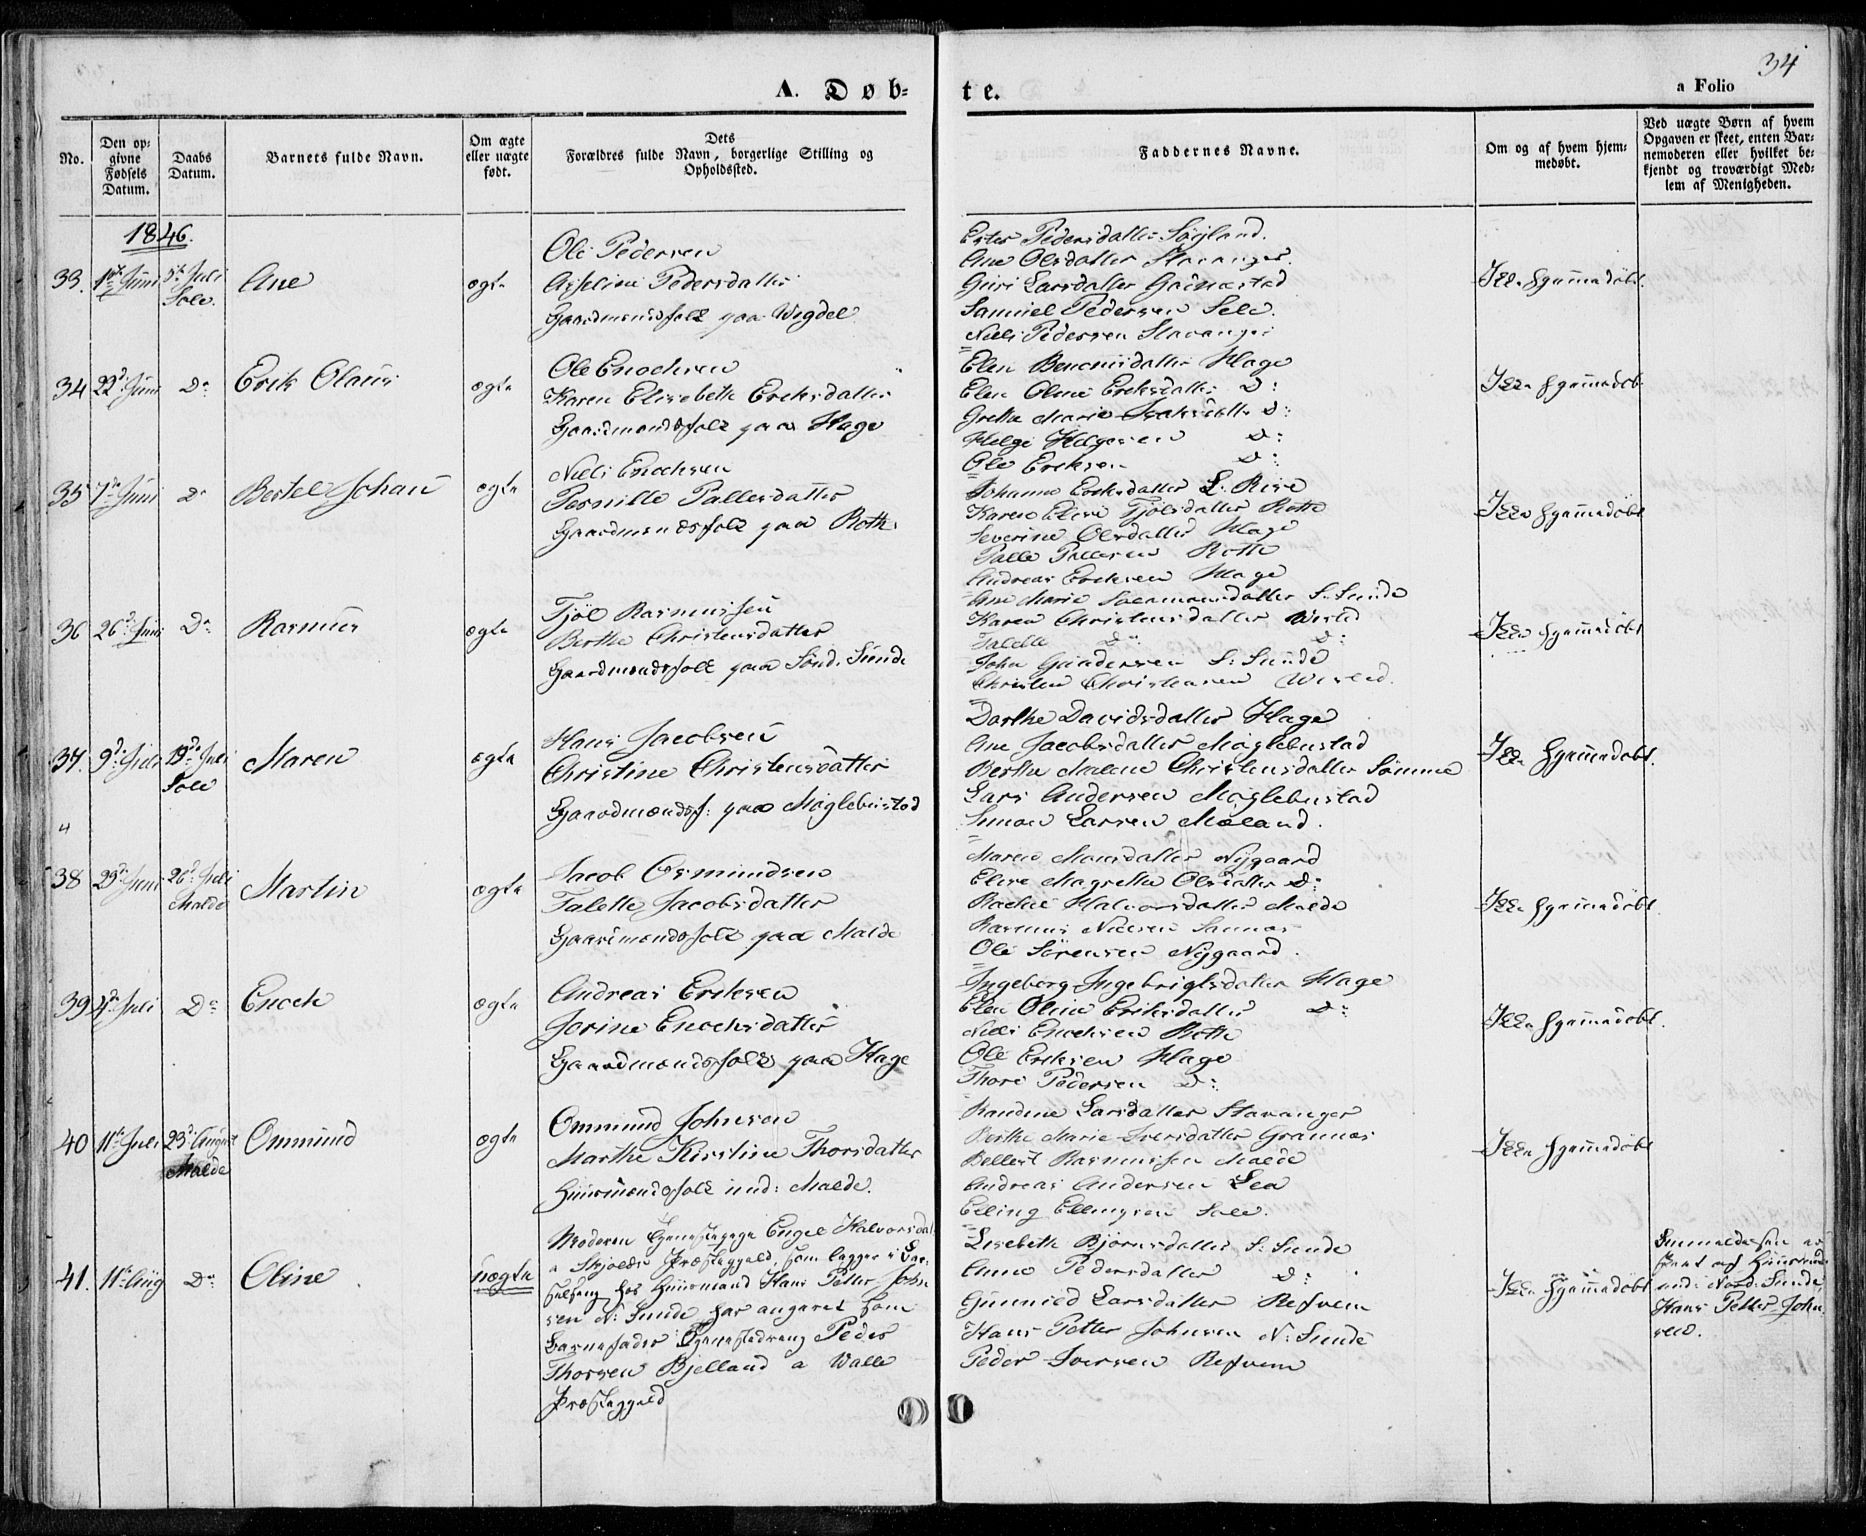 34
A. Døb-
te.
a Folio
No.
Den op-
givne
Fødsels
Datum.
Daabs
Datum.
Barnets fulde Navn.
Om ægte
eller uægte
født.
Dets
Forældres fulde Navn, borgerlige Stilling og
Opholdssted.
Faddernes Navne.
Om og af hvem hjem-
medøbt.
Ved uægte Børn af hvem
Opgaven er skeet, enten Bar-
nemoderen eller hvilket be-
kjendt og troværdigt Med-
lem af Menigheden.
1846.
33. Juni 5te Juli
Sole
Ane
ægte
Ole Pedersen
Pedersdatter
Gaardmandsfolk paa Wigdel
Ester Pedersdatter
Ane Olsdatter Stavanger
Guri Larsdatter
Samuel Pedersen Sele
Niels Pedersen Stavanger
Ikke hjemmedøbt.
34 22d Juni Do
Erik Olaus
ægte
Ole Enochsen
Karen Elisebeth Eriksdatter
Gaardmandsfolk paa Hage
Elen Hage
Elen Oline Eriksdatter D:
Grethe Marie D:
Helge Helgesen D:
Ole Eriksen D:
Ikke hjemmedøbt
35 7de Juni Do
Bertel Johan
ægte
Niels Enochsen
Pernille Pallesdatter
Gaardmandsfolk paa Rotte
Johanne Eriksdatter
Karen Elise Rotte
Severine Olsdatter Hage
Palle Pallesen Rotte
Andreas Eriksen Hage
Ikke hjemmedøbt
36 26d Juni Do
Rasmus
ægte
Tjøl Rasmussen
Berthe Christensdatter
Gaardmandsfolk paa Sønd: Sunde
Ane Marie S: Sunde
Karen Christensdatter
Talette D: D:
John Gundersen S: Sunde
Christen Christensen
Ikke hjemmedøbt
37. 9d Juli 19de Juli
Sole
Maren
ægte
Hans Jacobsen
Christine Christensdatter
Gaardmandsf: paa Møglebustad
Dorthe Davidsdatter Hage
Ane Jacobsdatter Møglebustad
Berthe Malene Christensdatter Sømme
Lars Andersen Møglebustad
Simon Larsen Mæland.
Ikke hjemmedøbt.
38 29d Juni 26d Juli
Malde
Martin
ægte
Jacob Osmundsen
Talette Jacobsdatter
Gaardmandsfolk paa Malde
Maren Monsdatter Nygaard
Elise Magrethe Olsdatter D:
Rachel Halvorsdatter Malde
Rasmus Nielsen
Ole Sørensen Nygaard.
Ikke hjemmedøbt.
39 4de Juli Do
Enoch
ægte
Andreas Eriksen
Jorine Enochsdatter
Gaardmandsfolk paa Hage
Ingeborg Ingebrigtsdatter Hage
Elen Oline Eriksdatter D:
Niels Enochsen Rotte
Ole Eriksen Hage
Thore Pedersen D:
Ikke hjemmedøbt.
40 11te Juli 23d August
Malde
Ommund
ægte
Ommund Johnson
Marthe Kirstine Thorsdatter
Huusmandsfolk und: Malde.
Randine Larsdatter Stavanger
Berthe Marie Iversdatter Grannes
Bellest Rasmussen Malde
Andreas Andersen Lea
Elling Ellingsen Sole.
Ikke hjemmedøbt
41. 11te Aug Do
Oline
uægte
Moderen Tjenestepige Engel Halvorsdat
a Skjolds Præstegjeld, som ligger i Bar-
selseng hos Huusmand Hans Petter John
sen N: Sunde har angivet som
Barnefader Tjenestedreng Peder
Thorsen Bjelland a Walle
Præstegjeld
Lisebeth Bjørnsdatter S: Sunde
Anne Pedersdatter D:
Gunnild Larsdatter Refvem
Hans Petter Johnsen N: Sunde
Peder Iversen Refvem
Ikke hjemmedøbt
af Huusmand
und: Nord: Sunde,
Hans Petter John
sen.